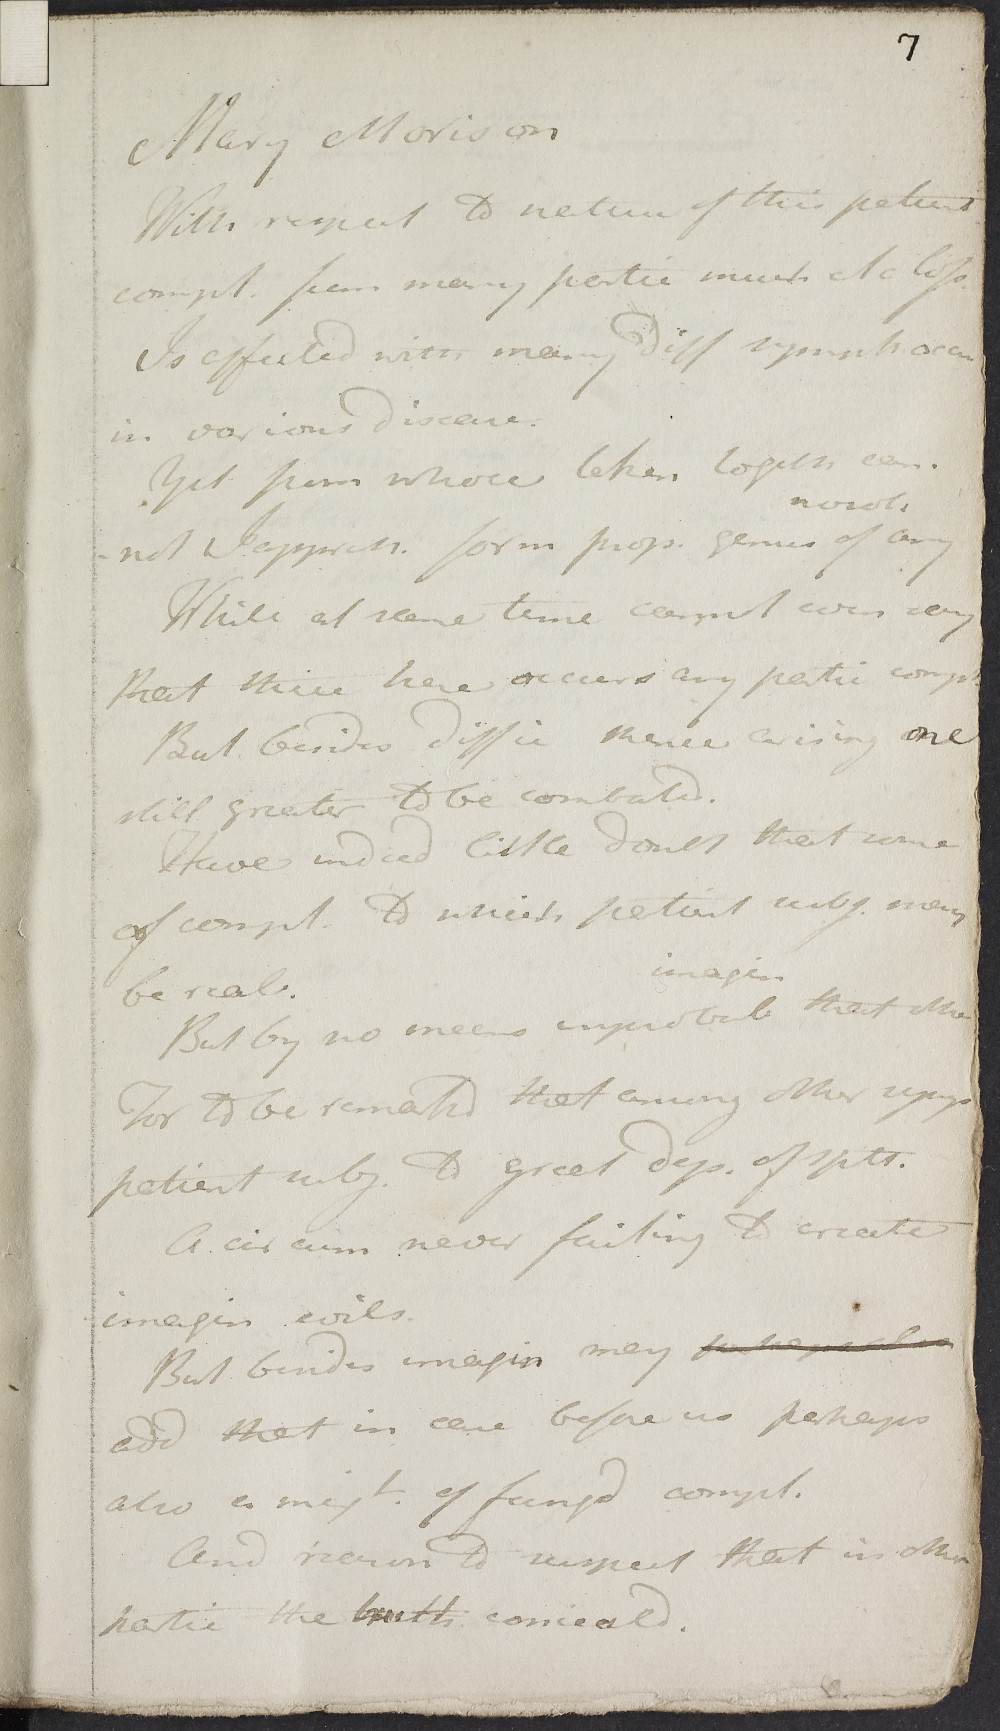 7
Mary Morison
With respect to nature of this patients
compl. from many partic much at a loss.
Is affected with many diff sympts occur
in various disease.
Yet from whole taken togeth can
nosol.
-not I appreh. form prop. genus of any
While at same time cannot even say
that there here occurs any partic compt
But besides diffic thence arising one
still greater to be combated.
Have indeed little doubt that some
of compl. to which patient subj. may
be real.
imagin
But by no means improbab that other
For to be remarkd that among other symps
patient subj. to great dejs. of spts.
A circum never failing to create
imagin evils.
But besides imagin may perhaps also
add that in case before us perhaps
also a mixt. of feingd compl.
And reason to suspect that in other
partic the truth conceald.